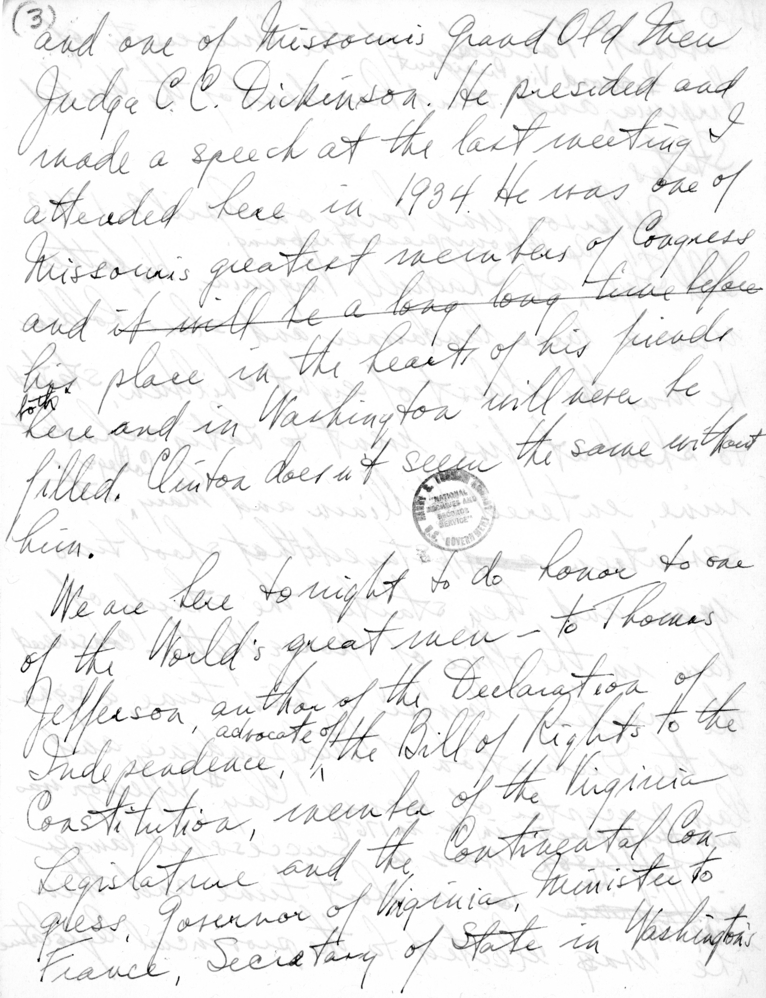 (3)
and one of Missouris Grand Old Men
Judge C. C. Dickinson. He presided and
made a speech at the last meeting I
attended here in 1934. He was one of
Missouris greatest members of Congress
and it will be a long long time before
his place in the hearts of his friends
both
here and in Washington will never be
filled. Clinton doesn't seem the same without
him.
HARRY S. TRUMAN LIBRARY
"NATIONAL
ARCHIVES AND
RECORDS
SERVICE"
U.S. GOVERNMENT
We are here tonight to do honor to one
of the World's great men – to Thomas
Jefferson, author of the Declaration of
advocate of
Independence, the Bill of Rights to the
Constitution, member of the Virginia
Legislature and the Continental Con-
gress, Governor of Virginia, Minister to
France, Secretary of State in Washington's